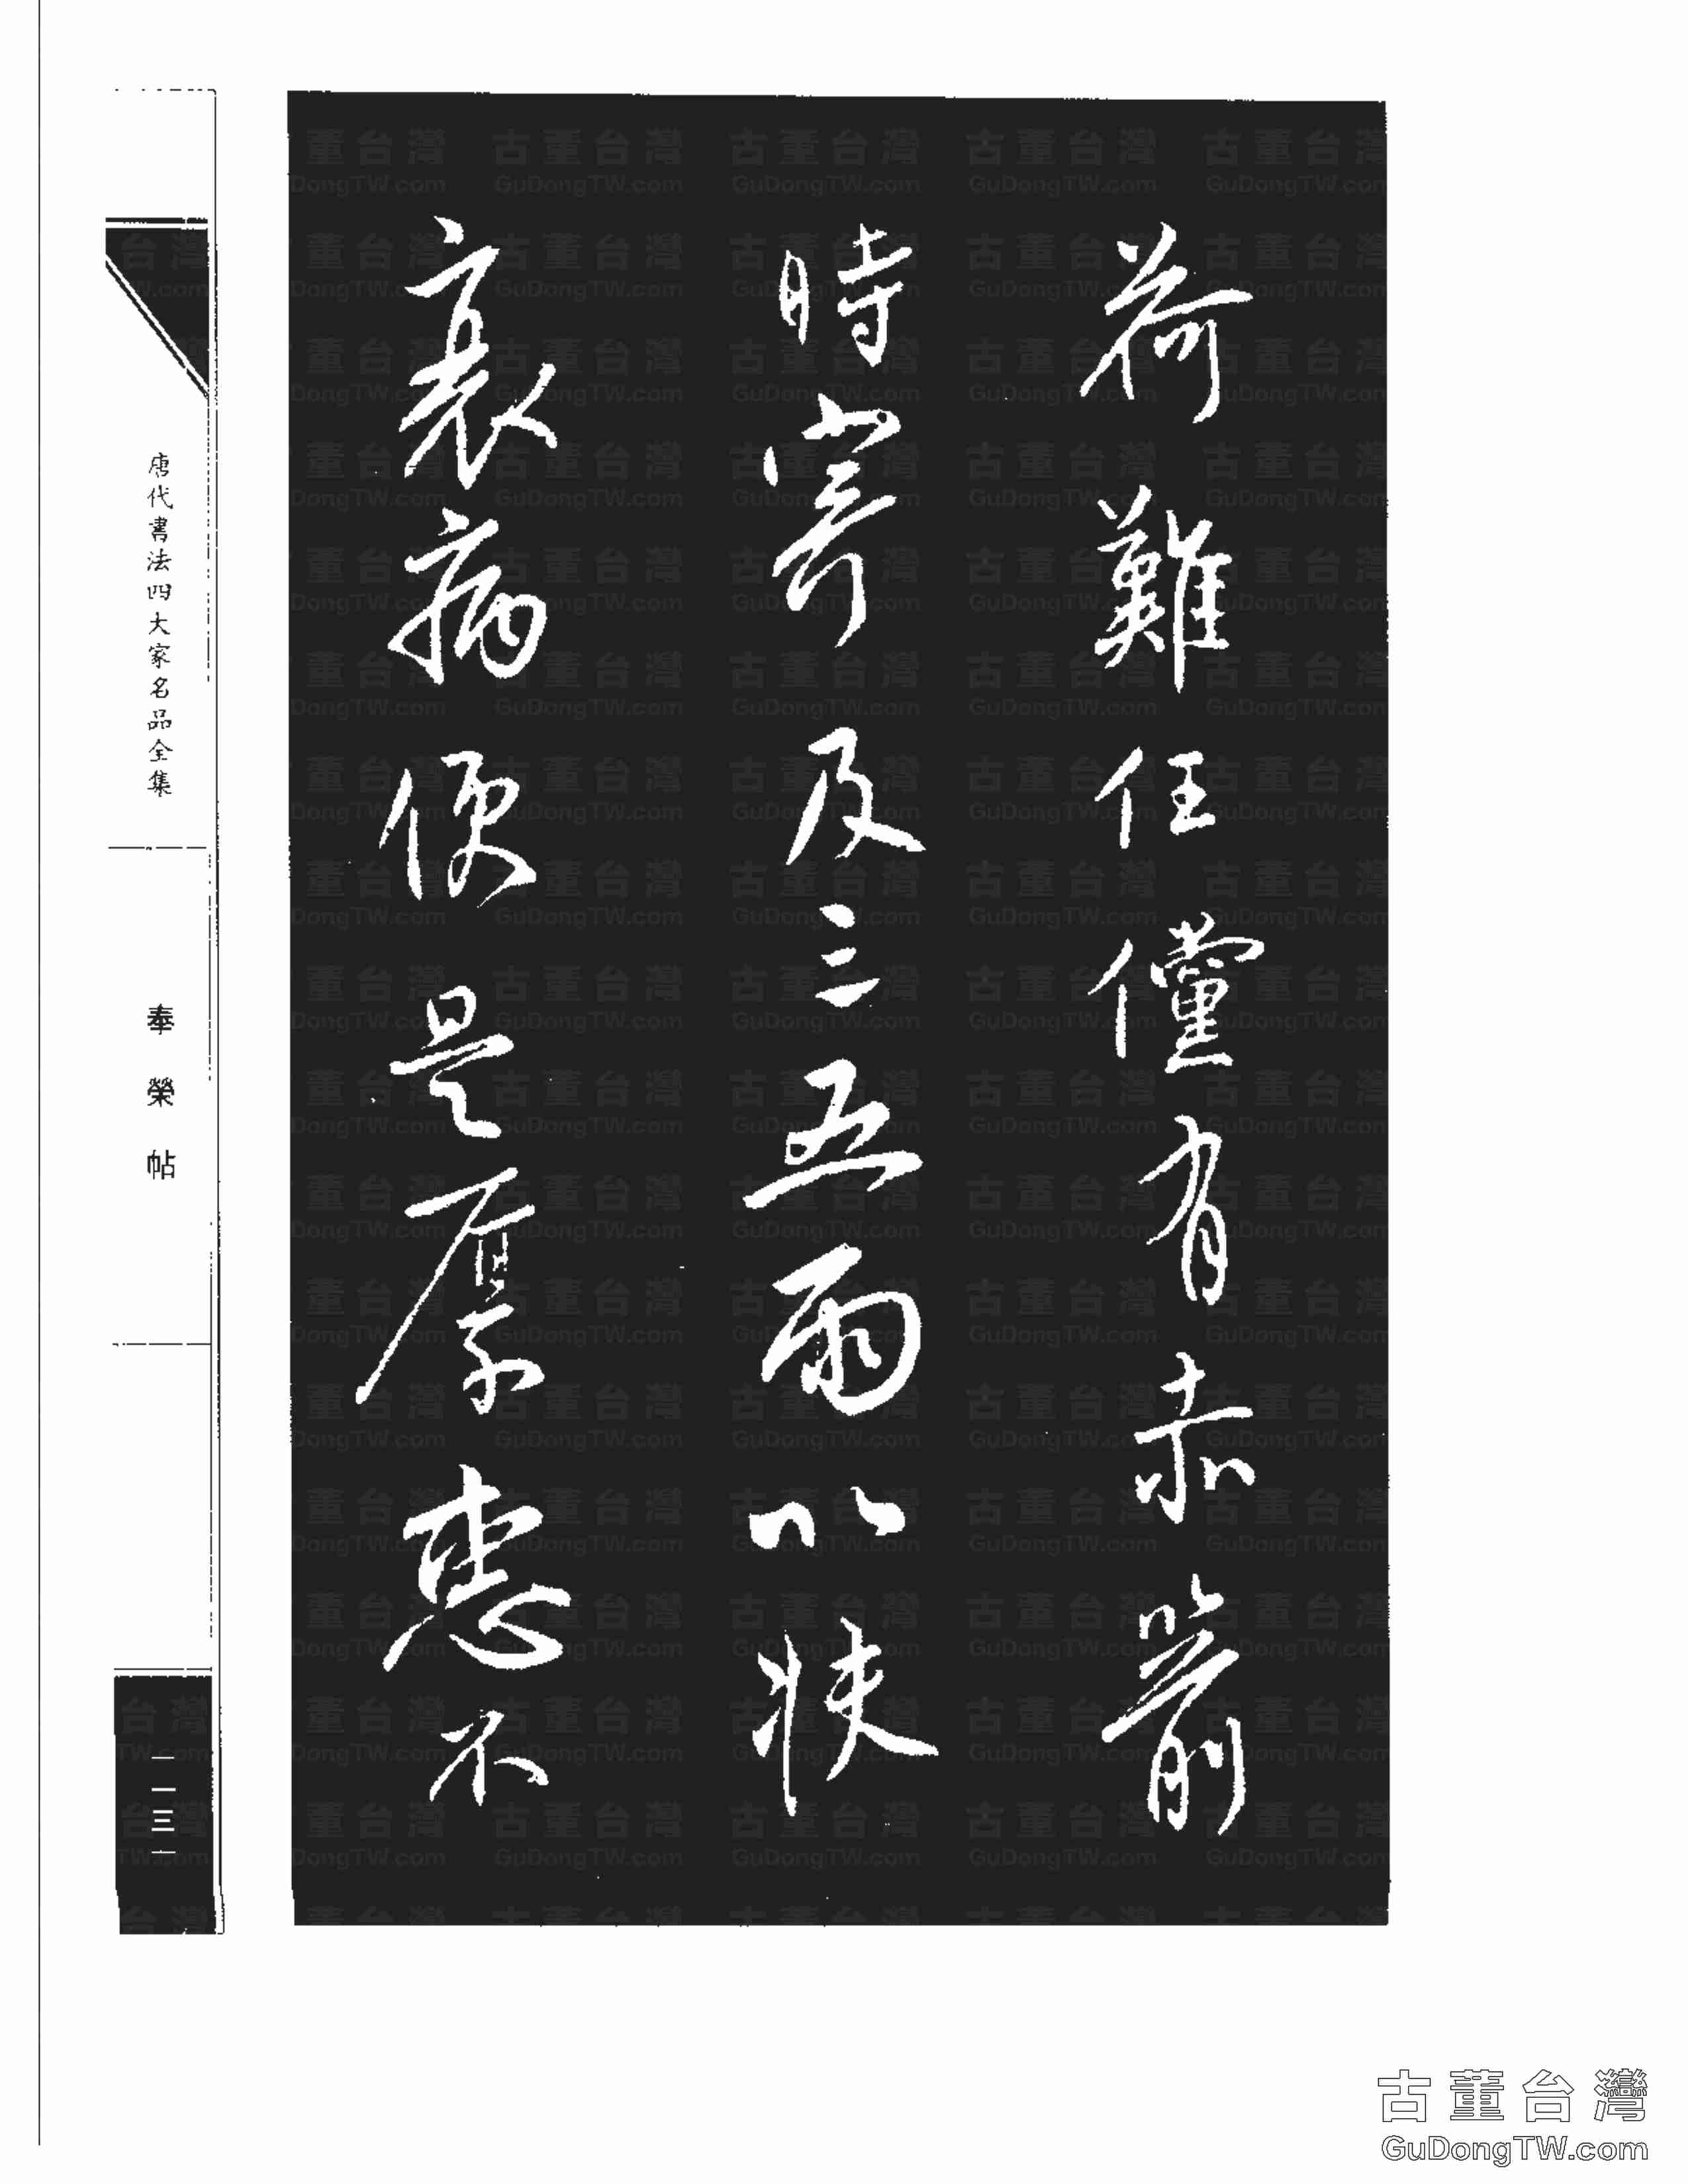 荷難任儻有赤箭
時寄及三五兩以扶
衰病便是厚惠不
唐代書法四大家名品全集
奉榮帖
一二三一
古董台灣
GuDongTW.com